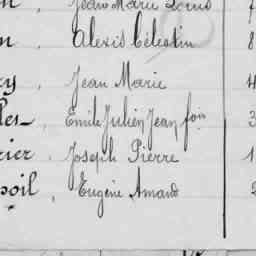 Jean Marie Louis
Alexis Célestin 8
Jean Marie 4
Emile Julien Jean fois 3
rier, Joseph Pierre 1
poil, Eugène Amand 2